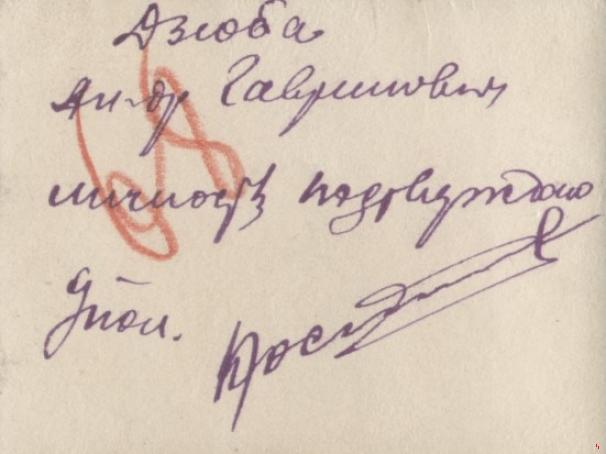 Дзюба
Андр Гаврилович
личность подтверждаю
Упол.